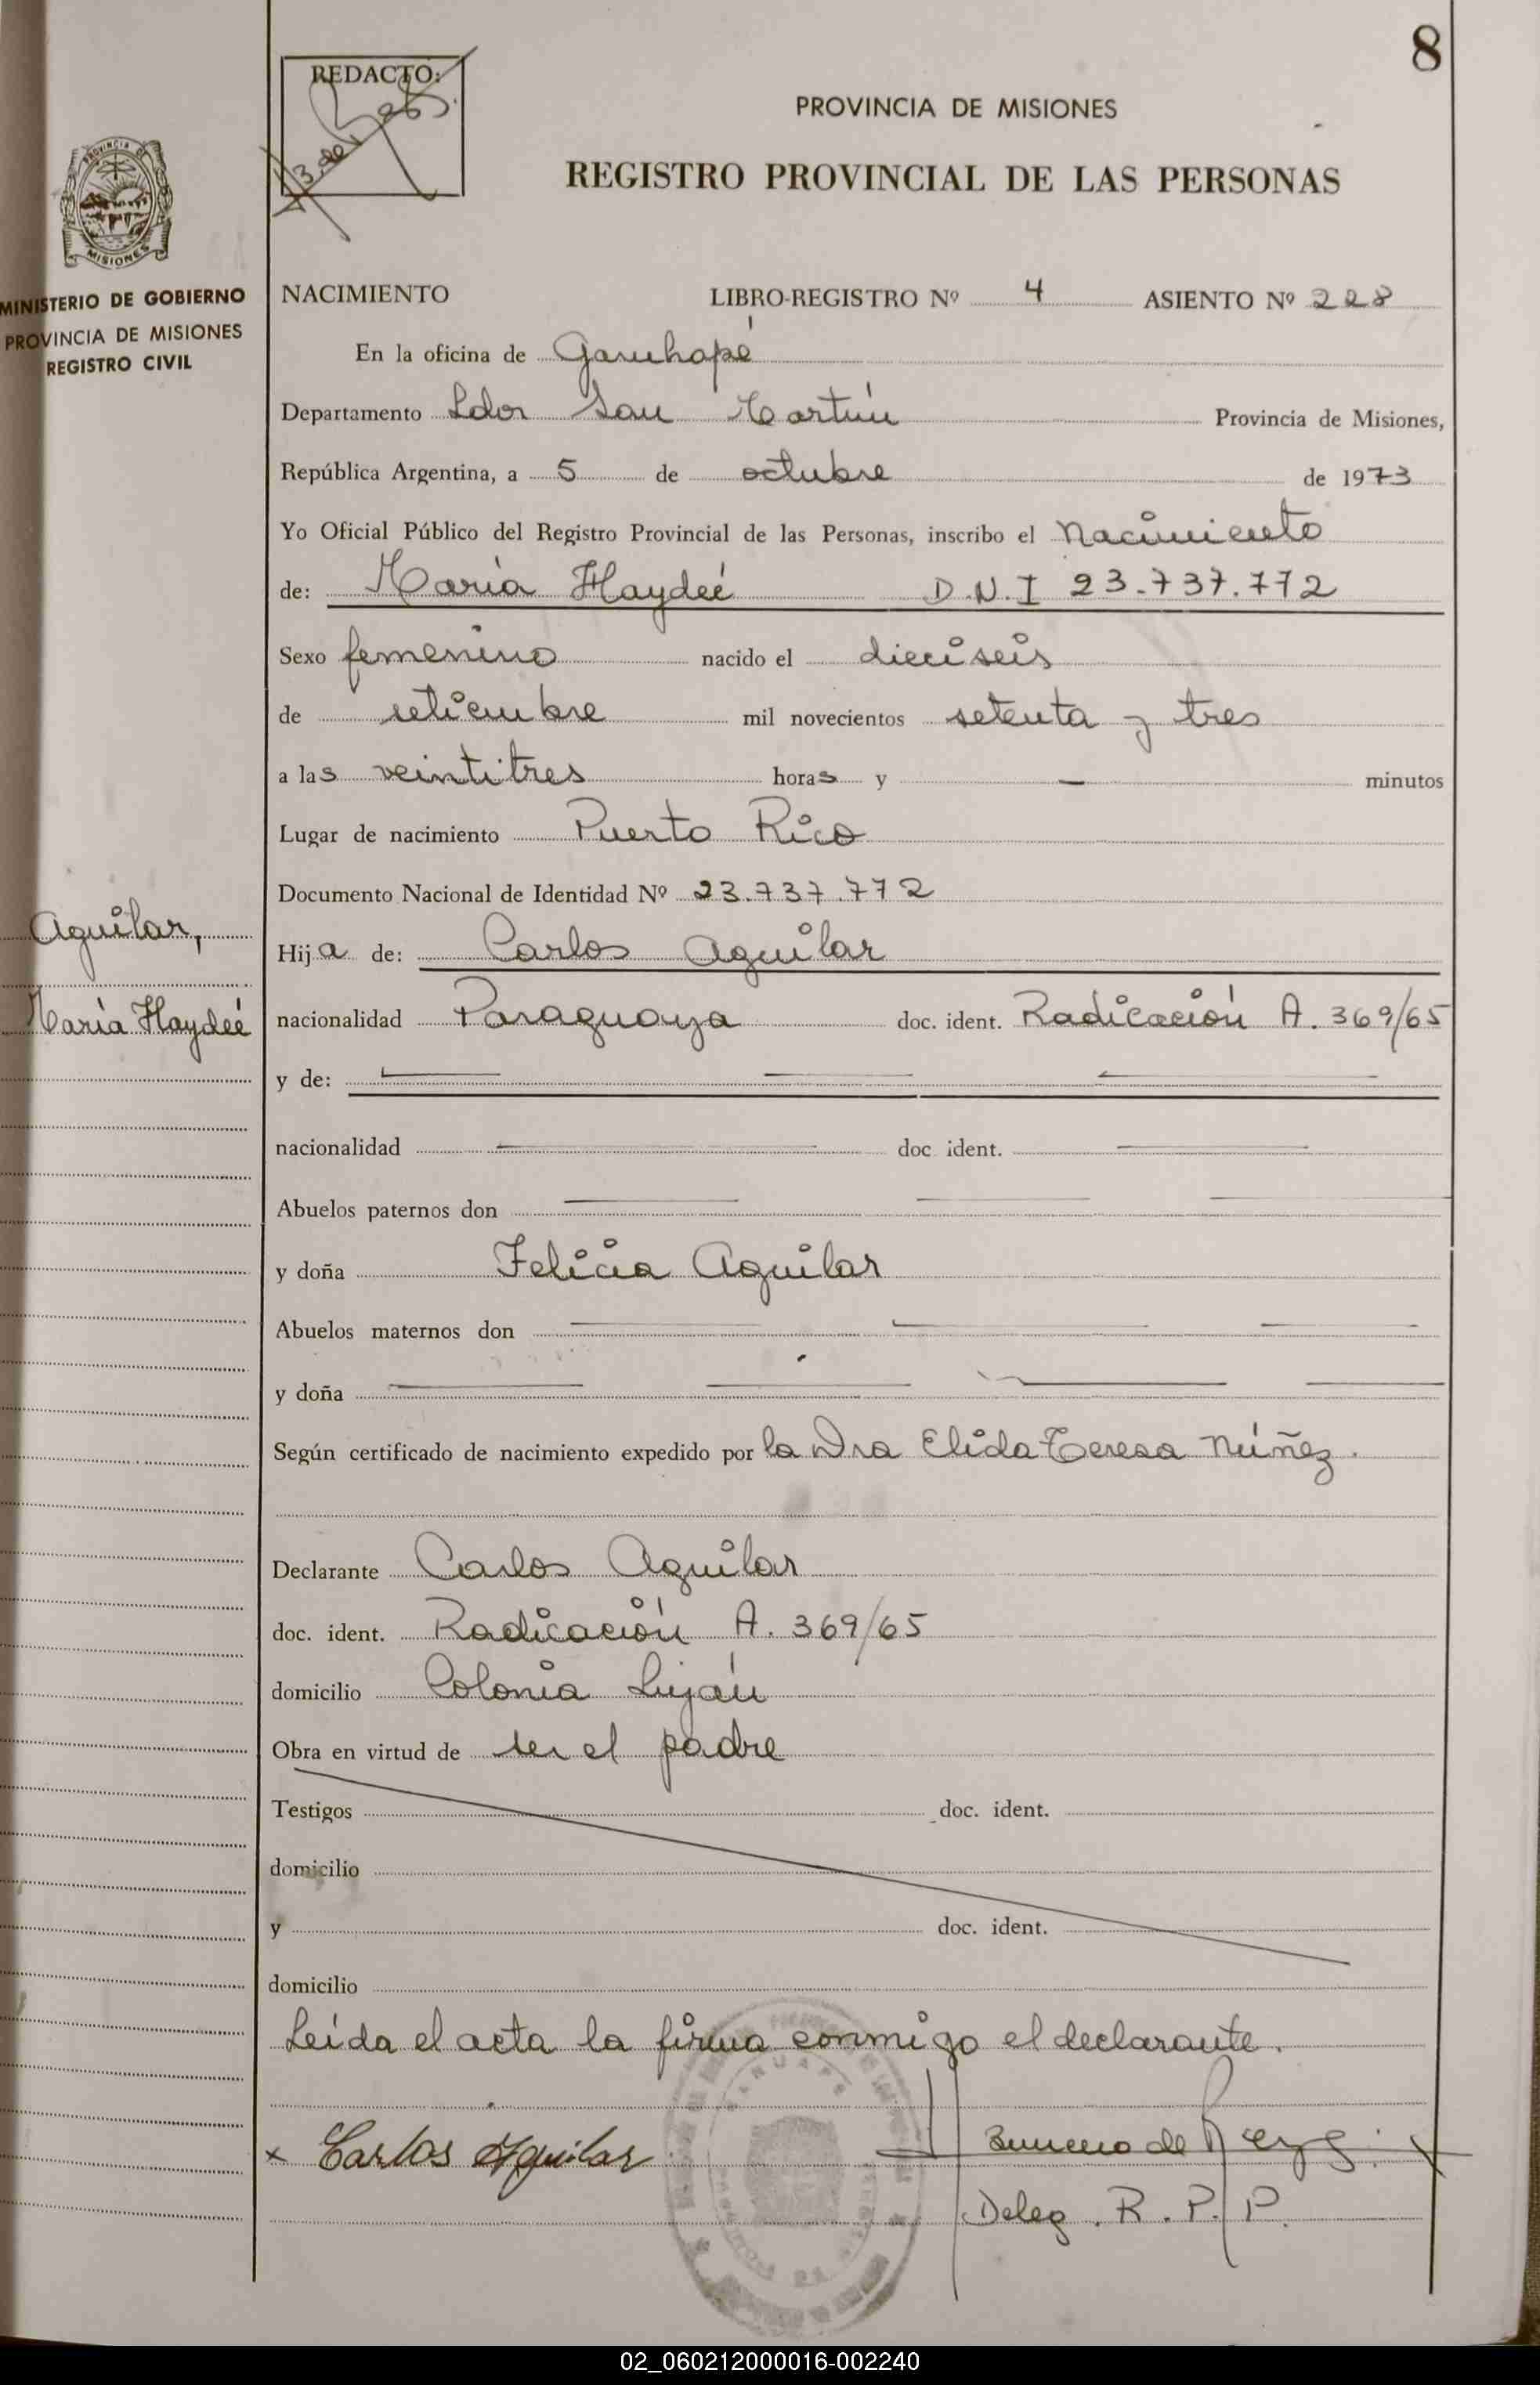 8
REDACTO:
PROVINCIA DE MISIONES
REGISTRO PROVINCIAL DE LAS PERSONAS
PROVINCIA DE
MISIONES
MINISTERIO DE GOBIERNO
PROVINCIA DE MISIONES
REGISTRO CIVIL
NACIMIENTO LIBRO-REGISTRO Nº 4 ASIENTO Nº 228
En la oficina de Garuhapé
Departamento Ldor San Martín Provincia de Misiones,
República Argentina, a 5 de octubre de 1973
Yo Oficial Público del Registro Provincial de las Personas, inscribo el Nacimiento
de: María Haydeé D.N.I 23.737.772
Sexo femenino nacido el dieciseis
de setiembre mil novecientos setenta y tres
a las veintitres horas y — minutos
Lugar de nacimiento Puerto Rico
Documento Nacional de Identidad Nº 23.737.772
Aguilar,
María Haydeé
Hija de: Carlos Aguilar
nacionalidad Paraguaya doc. ident. Radicación A. 369/65
y de:
nacionalidad doc. ident.
Abuelos paternos don
y doña Felicia Aguilar
Abuelos maternos don
y doña
Según certificado de nacimiento expedido por la Dra Elida Teresa Núñez.
Declarante Carlos Aguilar
doc. ident. Radicación A. 369/65
domicilio Colonia Luján
Obra en virtud de ser el padre
Testigos doc. ident.
domicilio
y doc. ident.
domicilio
Leída el acta la firma conmigo el declarante.
x Carlos Aguilar
Deleg. R. P. P.
02_060212000016-002240